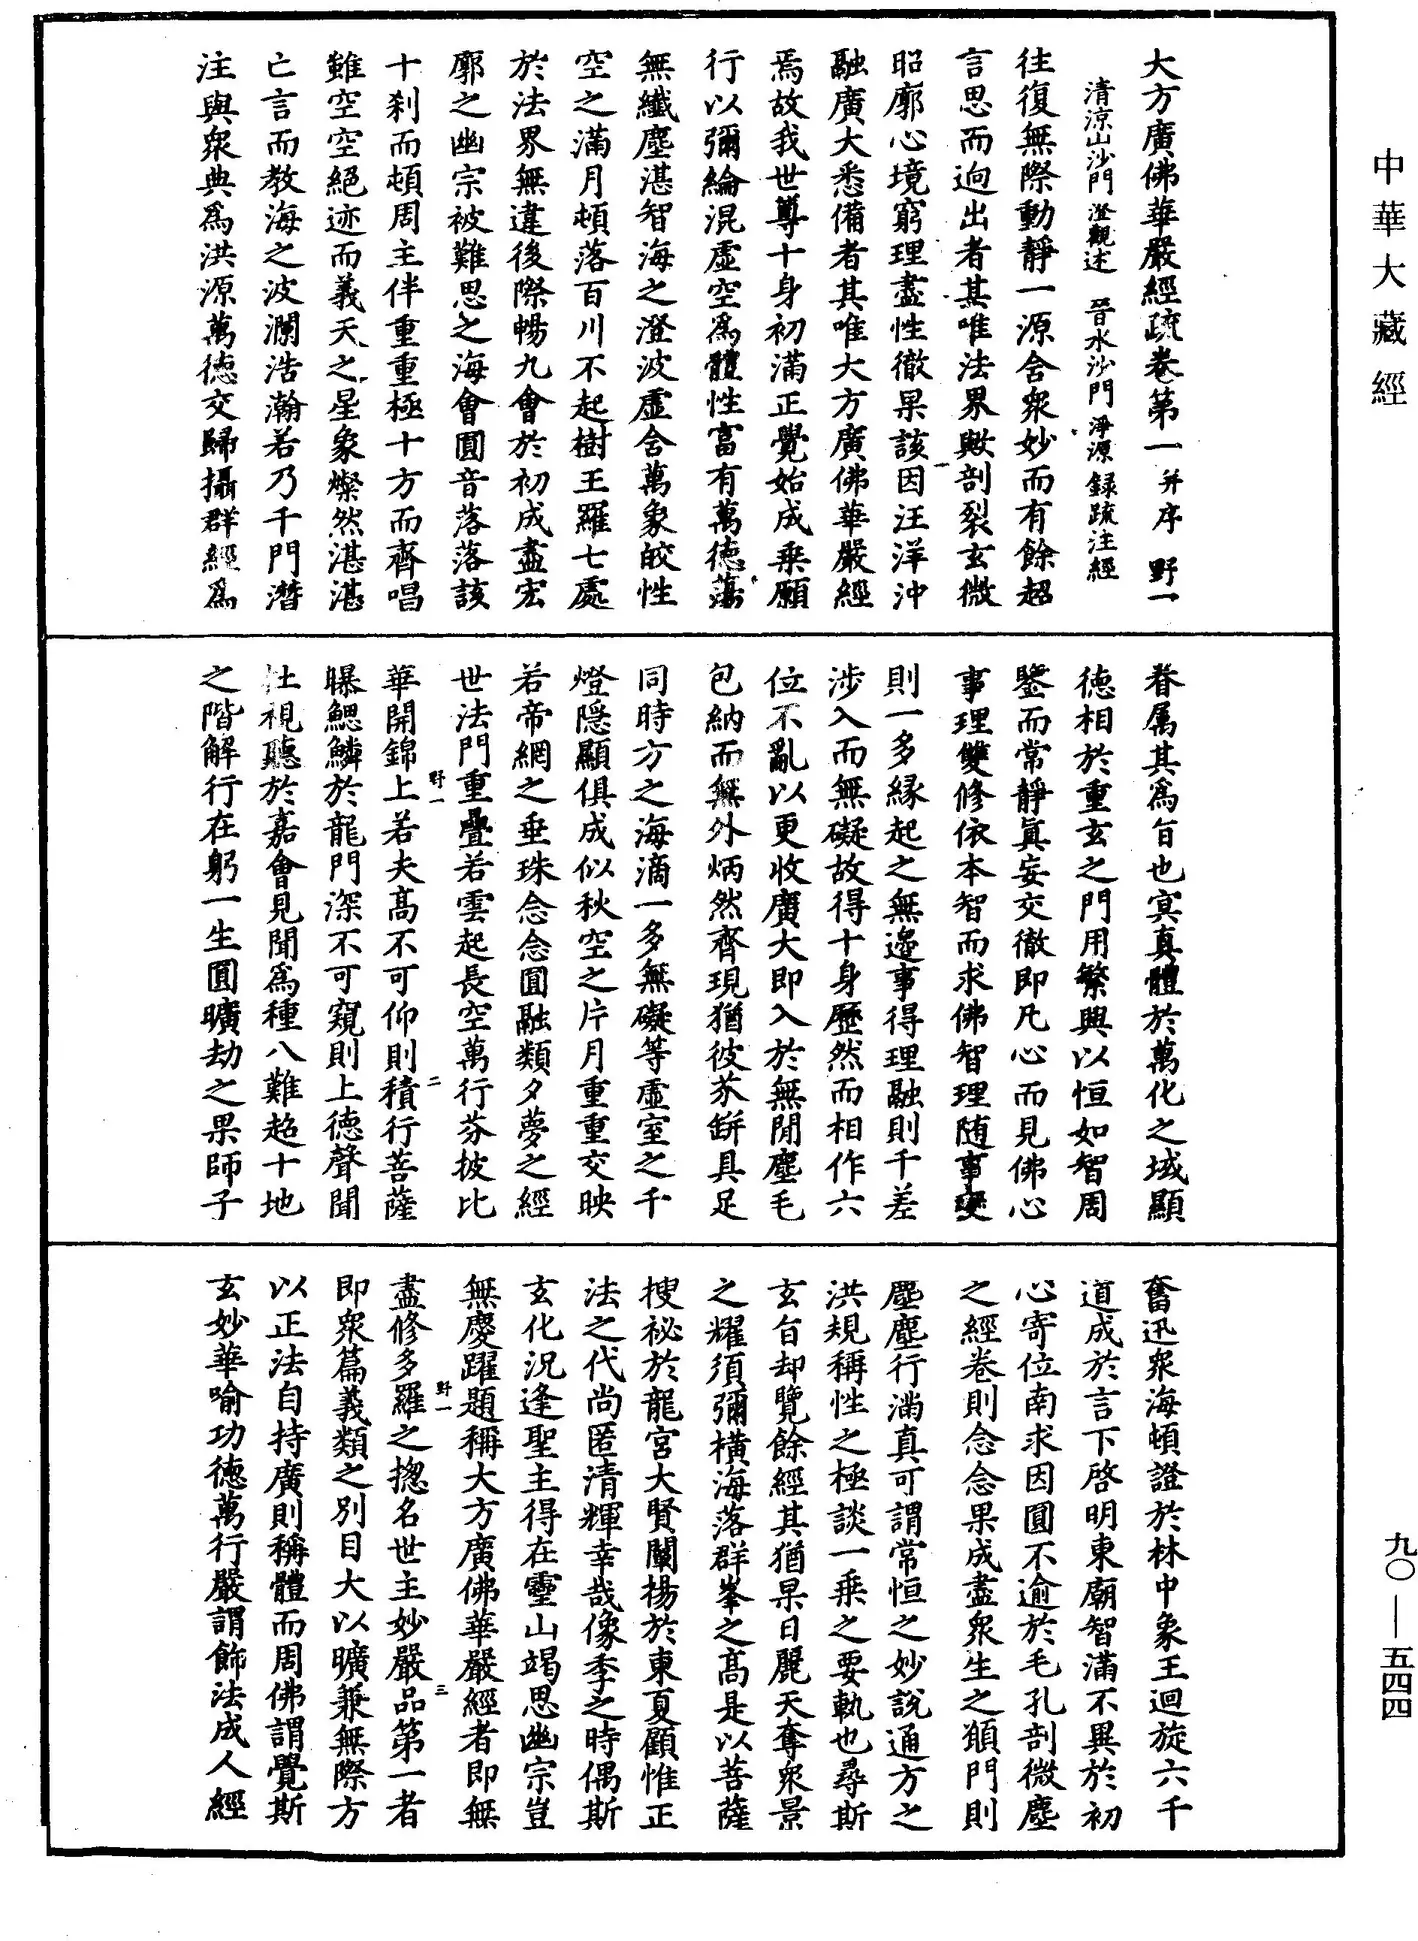 中華大藏經
大方廣佛華嚴經疏卷第一 并序 野一
清涼山沙門 澄觀述 晉水沙門 淨源 録疏注經
往復無際動靜一源含衆妙而有餘超
言思而迥出者其唯法界歟剖裂玄微
昭廓心境窮理盡性徹果該因汪洋沖
融廣大悉備者其唯大方廣佛華嚴經
焉故我世尊十身初滿正覺始成乗願
行以彌綸混虛空爲體性富有萬德蕩
無纖塵湛智海之澄波虛含萬象皎性
空之滿月頓落百川不起樹王羅七處
於法界無違後際暢九會於初成盡宏
廓之幽宗被難思之海會圓音落落該
十刹而頓周主伴重重極十方而齊唱
雖空空絕迹而義天之星象燦然湛湛
亡言而教海之波瀾浩瀚若乃千門潛
注與衆典爲洪源萬德交歸攝群經爲
眷属其爲旨也冥真體於萬化之域顯
德相於重玄之門用繁興以恒如智周
鑒而常靜眞妄交徹即凡心而見佛心
事理雙修依本智而求佛智理随事變
則一多緣起之無邊事得理融則千差
涉入而無礙故得十身歷然而相作六
位不亂以更收廣大即入於無間塵毛
包納而無外炳然齊現猶彼芥缾具足
同時方之海滴一多無礙等虛室之千
燈隱顯俱成似秋空之片月重重交映
若帝網之垂珠念念圓融類夕夢之經
世法門重疊若雲起長空萬行芬披比
華開錦上若夫高不可仰則積行菩薩
野一
二
曝鰓鱗於龍門深不可窺則上德聲聞
杜視聽於嘉會見聞爲種八難超十地
之階解行在躬一生圓曠劫之果師子
奮迅衆海頓證於林中象王迴旋六千
道成於言下啓明東廟智滿不異於初
心寄位南求因圓不逾於毛孔剖微塵
之經卷則念念果成盡衆生之願門則
塵塵行滿真可謂常恒之妙說通方之
洪規稱性之極談一乗之要軌也尋斯
玄旨却覽餘經其猶杲日麗天奪衆景
之耀須彌橫海落群峯之高是以菩薩
搜祕於龍宮大賢闡揚於東夏顧惟正
法之代尚匿清輝幸哉像季之時偶斯
玄化況逢聖主得在靈山竭思幽宗豈
無慶躍題稱大方廣佛華嚴經者即無
盡修多羅之揔名世主妙嚴品第一者
野一
三
即衆篇義類之別目大以曠兼無際方
以正法自持廣則稱體而周佛謂覺斯
玄妙華喻功德萬行嚴謂飾法成人經
九〇—五四四